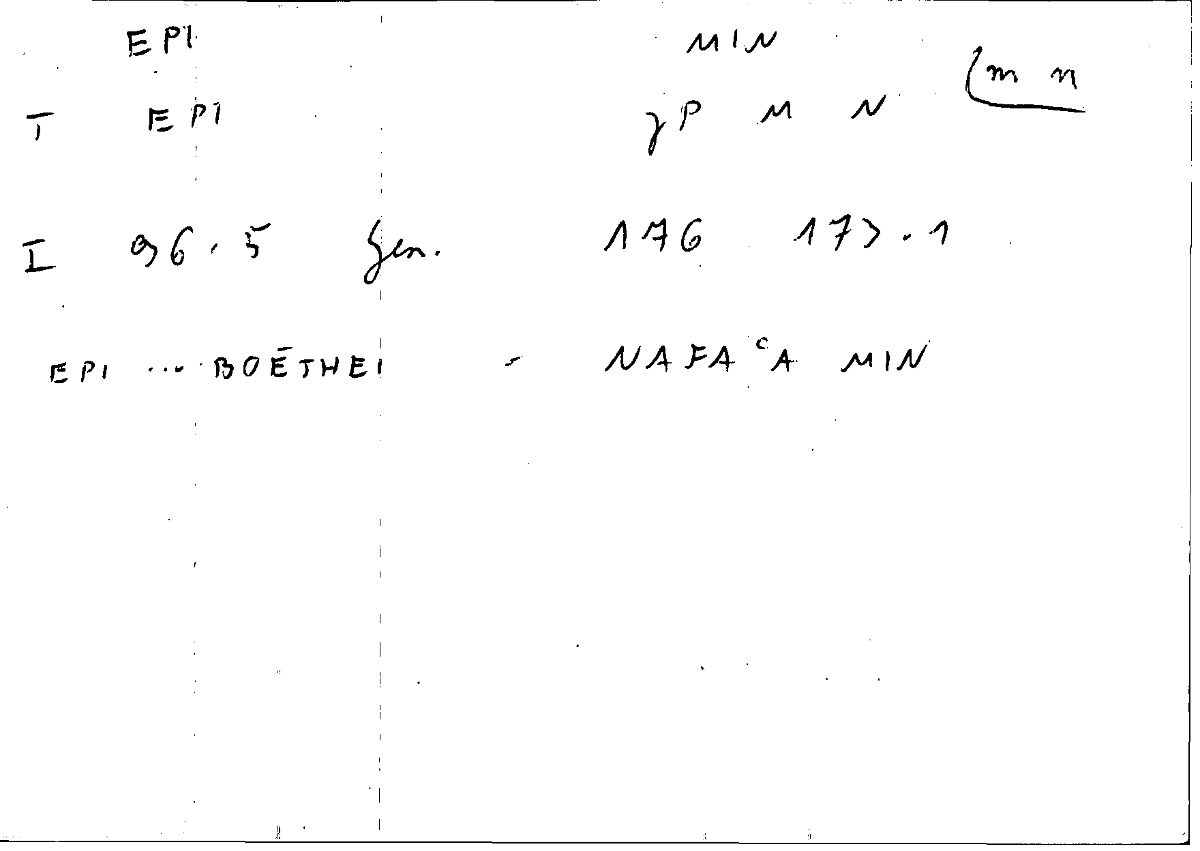 EPI MIN
T EPI γP M N (m n
I 96.5 Gen. 176 177.1
EPI ... BOĒTHEI - NAFAʿA MIN